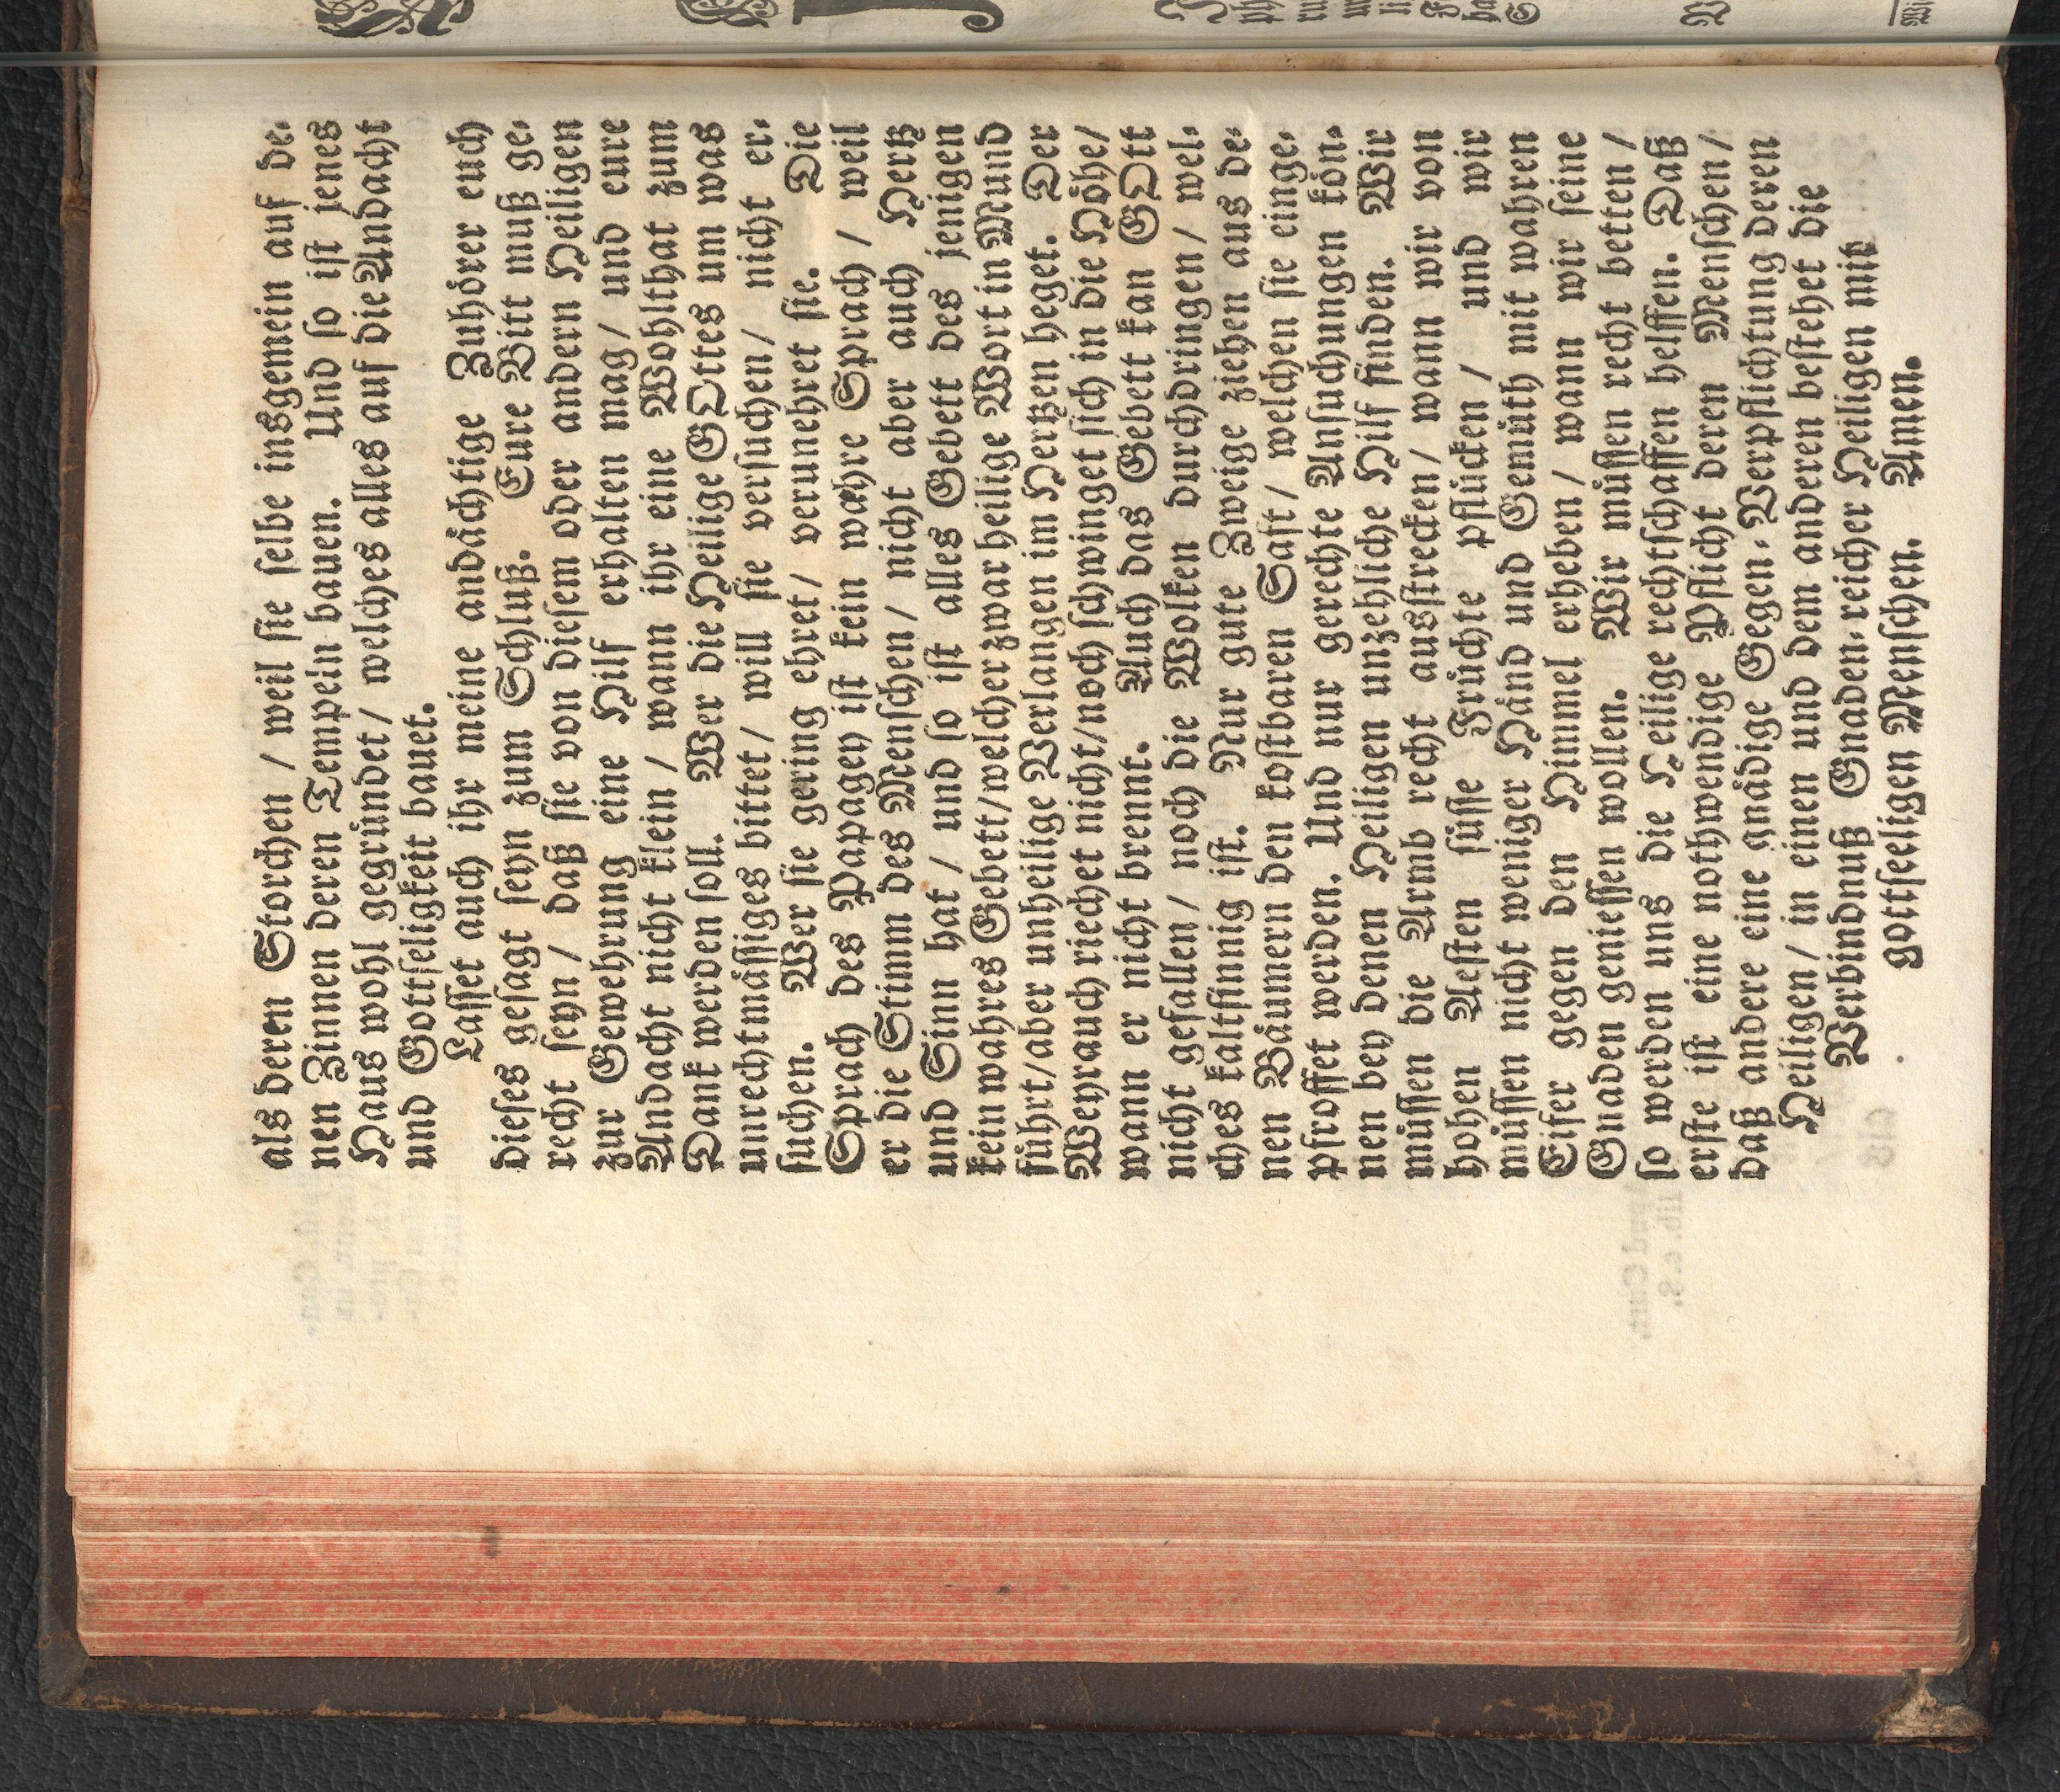 als deren Storchen / weil sie selbe insgemein auf de-
nen Zinnen deren Tempeln bauen. Und so ist jenes
Haus wohl gegründet / welches alles auf die Andacht
und Gottseligkeit bauet.
Lasset auch ihr meine andächtige Zuhörer euch
dieses gesagt seyn zum Schluß. Eure Bitt muß ge-
recht seyn / daß sie von diesem oder andern Heiligen
zur Gewehrung eine Hilf erhalten mag / und eure
Andacht nicht klein / wann ihr eine Wohlthat zum
Dank werden soll. Wer die Heilige GOttes um was
unrechtmässiges bittet / will sie versuchen / nicht er-
suchen. Wer sie gering ehret / verunehret sie. Die
Sprach des Papagey ist kein wahre Sprach / weil
er die Stimm des Menschen / nicht aber auch Hertz
und Sinn hat / und so ist alles Gebett des jenigen
kein wahres Gebett / welcher zwar heilige Wort in Mund
führt / aber unheilige Verlangen im Hertzen heget. Der
Weyrauch riechet nicht / noch schwinget sich in die Höhe /
wann er nicht brennt. Auch das Gebett kan GOtt
nicht gefallen / noch die Wolken durchdringen / wel-
ches kaltsinnig ist. Nur gute Zweige ziehen aus de-
nen Bäumern den kostbaren Saft / welchen sie einge-
pfroffet werden. Und nur gerechte Ansuchungen kön-
nen bey denen Heiligen unzehliche Hilf finden. Wir
müssen die Armb recht ausstrecken / wann wir von
hohen Aesten süsse Früchte pflücken / und wir
müssen nicht weniger Händ und Gemüth mit wahren
Eifer gegen den Himmel erheben / wann wir seine
Gnaden geniessen wollen. Wir müssen recht betten /
so werden uns die Heilige rechtschaffen helffen. Daß
erste ist eine nothwendige Pflicht deren Menschen /
daß andere eine gnädige Gegen-Verpflichtung deren
Heiligen / in einen und dem anderen bestehet die
Verbindnuß Gnaden-reicher Heiligen mit
gottseeligen Menschen. Amen.